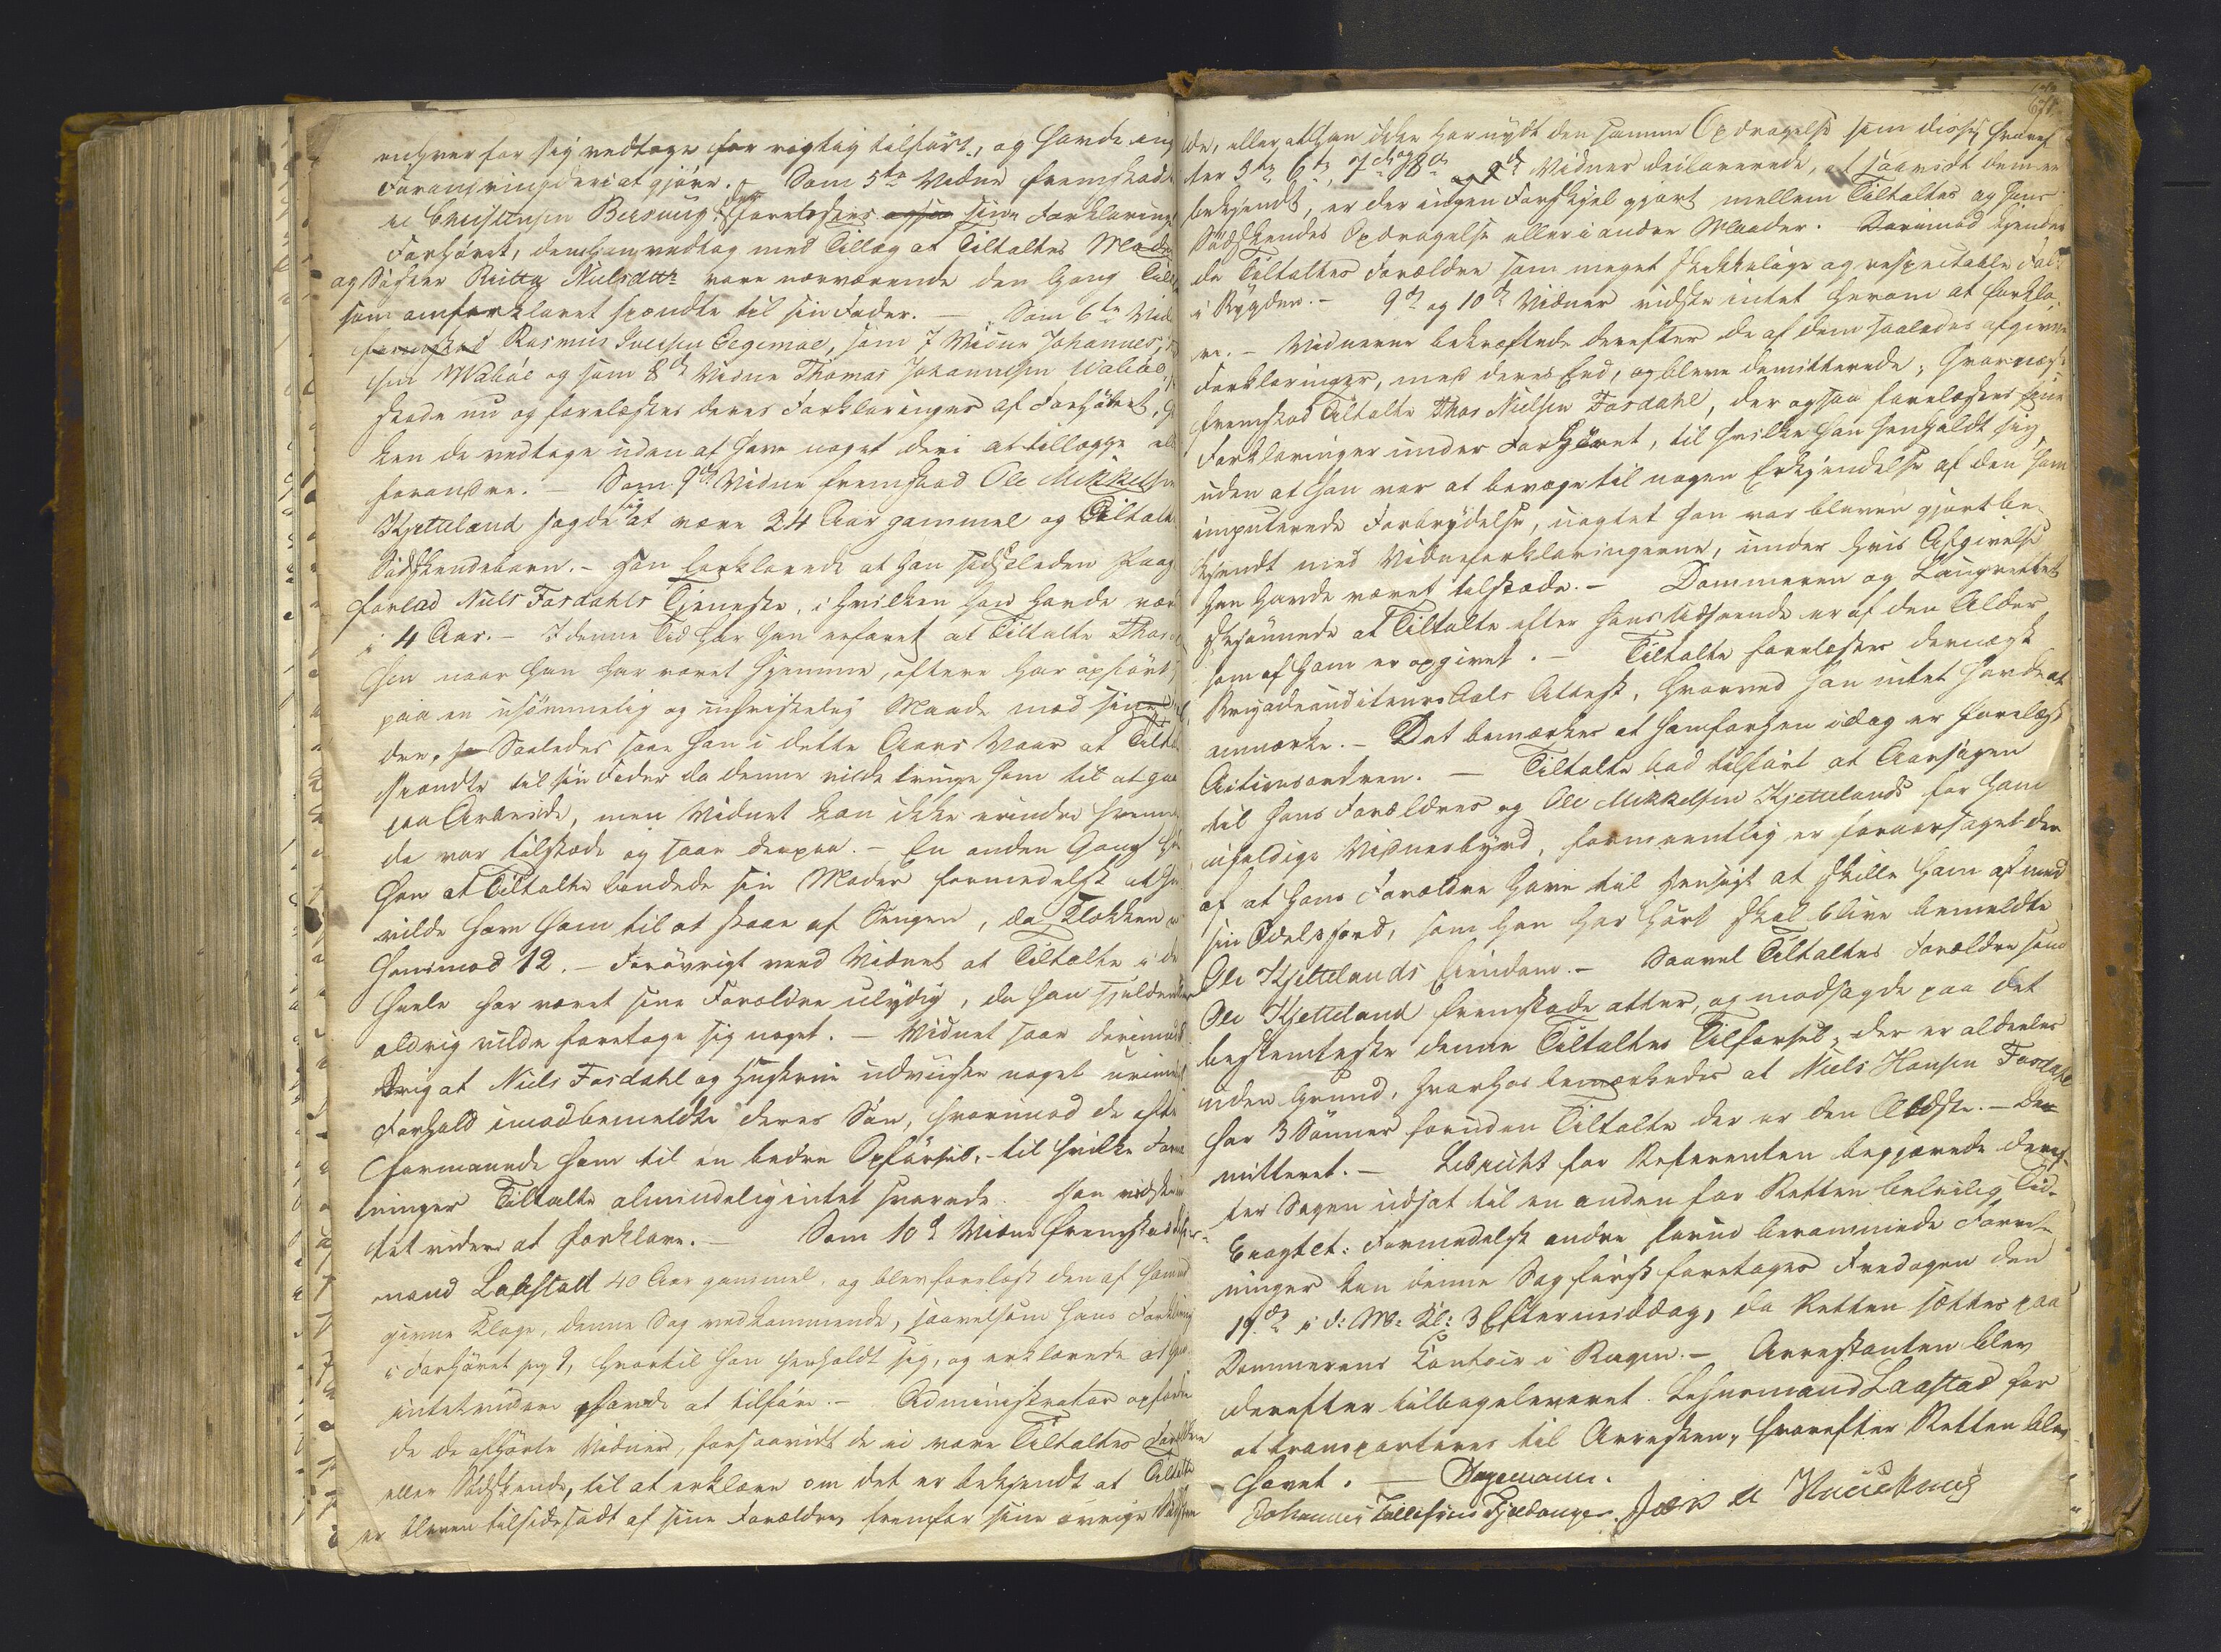 enhver for sig vedtoge for rigtig tilført, og havde ing
Forandring deri at gjøre. - Som 5te Vidne fremstod
Christensen Birsung der forelæstes også sin Forklaring
Forhøret, den han vedtog med Tillæg at Tiltaltes Moder
og Søster Britta Nielsdttr vare nærværende den Gang Tilt
som omforklaret spændte til sin Fader. — Som 6te Vid
fremstod Rasmus Iversen Degemoe, som 7 Vidne Johannes
sen Waleöe og som 8de Vidne Thomas Johannesen Waleöe,
stode nu og forelæstes deres Forklaringer af Forhøret,
ken de vedtoge uden at have noget deri at tillægge ell
forandre. — Som 9de Vidne fremstod Ole Mikkelsen
Kjetteland sagde sig at være 24 Aar gammel og Tiltalt
Sødskendebarn. - Han forklarede at han sidstleden Paas
forlod Niels Fosdahls Tjeneste, i hvilken han havde vær
i 4 Aar. - I denne Tid har han erfaret at Tiltalte Thos
sen naar han har været hjemme, oftere har opført
paa en usømmelig og uchristelig Maade mod sine
dre. Saaledes saae han i dette Aars Vaar at Tilt
spændte til sin Fader da denne vilde tvinge ham til at gaa
paa Arbeide, men Vidnet kan ikke erindre hvem
da var tilstæde og saae derpaa. - En anden Gang
han at Tiltalte bandede sin Moder formedelst at hu
vilde have ham til at staae af Sengen, da Klokken
henimod 12. - Forøvrigt veed Vidnet at Tiltalte i de
heele har været sine Forældre ulydig, da han sjelden eller
aldrig vilde foretage sig noget. - Vidnet saae derimod
drig at Niels Fosdahl og Hustrue udviiste noget urime
Forhold imod bemeldte deres Søn, hvorimod de ofte
formanede ham til en bedre Opførsel, - til hvilke Form
ninger Tiltalte almindelig intet svarede. Han vidste in
tet videre at forklare. — Som 10de Vidne fremstod Lehns-
mand Laastad 40 Aar gammel, og blev forelæst den af ham
givne Klage, denne Sag vedkommende, saavelsom hans Forklaring
i Forhøret pag 9, hvortil han henholdt sig, og erklærede at han
intet videre havde at tilføre. - Administrator opfordre
de de afhørte Vidner, forsaavidt de ei vare Tiltaltes Forældre
eller Sødskende, til at erklære om det er bekjendt at Tiltalte
er bleven tilsidesadt af sine Forældre, fremfor sine øvrige Sødsken
de, eller at han ikke har nydt den samme Opdragelse som disse, hvoref
ter 5te 6te, 7de og 8de Vidner declarerede, at saavidt dem er
bekjendt, er der ingen Forskjel gjort mellem Tiltaltes og hans
Sødskendes Opdragelse eller i andre Maader. Derimod kjender
de Tiltaltes Forældre som meget skikkelige og respectable Folk
i Bygden. - 9de og 10de Vidner vidste intet herom at forkla
re. - Vidnerne bekræftede derefter de af dem saaledes afgivne
Forklaringer, med deres Eed, og bleve demitterede; hvornæst
fremstod Tiltalte Thos Nielsen Fosdahl, der ogsaa forelæstes sine
Forklaringer under Forhøret, til hvilke han henholdt sig
uden at han var at bevæge til nogen Erkjendelse af den ham
imputerede Forbrydelse, uagtet han var bleven gjort be-
kjendt med Vidneforklaringerne, under hvis Afgivelse
han havde været tilstæde. - Dommeren og Laugrettet
skjønnede at Tiltalte efter hans Udseende er af den Alder,
som af ham er opgivet. - Tiltalte forelæstes dernæst
Brigadeauditeur Dals Attest, hvorved han intet havde at
anmærke. - Det bemærkes at ham forhen idag er forelæst
Actionsordren. — Tiltalte bad tilført at Aarsagen
til hans Forældres og Ole Mikkelsen Kjettelands for ham
ufældige Vidnesbyrd, formeentlig er foraarsaget der
af at hans Forældre have til Hensigt at skille ham af med
sin Odelsjord, som han har hørt skal blive bemeldte
Ole Kjettelands Eiendom. - Saavel Tiltaltes Forældre som
Ole Kjetteland fremstode atter, og modsagde paa det
bestemteste denne Tiltaltes Tilførsel, der er aldeeles
uden Grund, hvorhos bemærkedes at Niels Hansen Fosdahl
har 3 Sønner foruden Tiltalte der er den Ældste. - De
mitteret. - Librecht for Referenten begjærede deref-
ter Sagen udsat til en anden for Retten beleilig Tid.
Eragtet: Formedelst andre forud berammede Forret
ninger kan denne Sag først foretages Fredagen den
19de i d: M: Kl: 3 Eftermiddag, da Retten sættes paa
Dommerens Contoir i Ragen. - Arrestanten blev
derefter tilbageleveret Lehnsmand Laastad for
at transporteres til Arresten, hvorefter Retten blev
hævet. — Hagemann.
Johannes Tollefsen Fjeldanger.